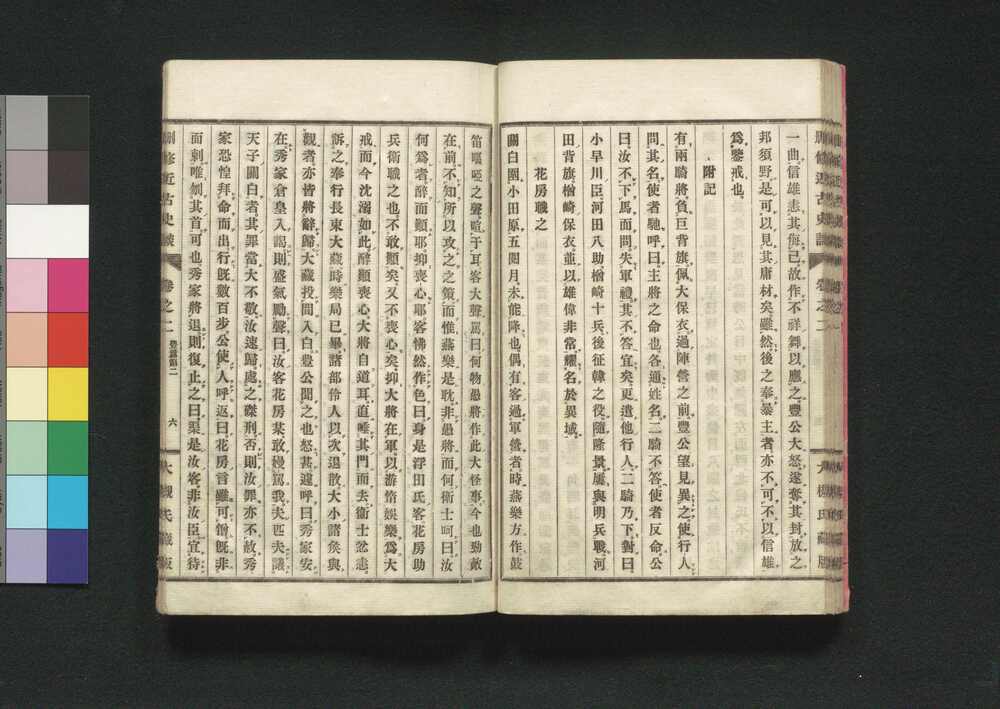 一曲信雄恚其侮已故作不祥舞以應之豐公大怒遂奪其封放之
邦須野是可以見其庸材矣雖然後之奉暴主者亦不可不以信雄
爲鑒戒也
附記
有兩騎將負巨背旗佩大保衣過陣營之前豐公望見異之使行人
問其名使者馳呼曰主將之命也各通姓名二騎不答使者反命公
曰汝不下馬而問失軍禮其不答宜矣更遣他行人二騎乃下對曰
小早川臣河田八助檜崎十兵後征韓之役隨隆景屢與明兵戰河
田背旗檜崎保衣並以雄偉非常耀名於異域
花房職之
關白圍小田原五閱月未能降也偶有客過軍營者時蕪樂方作鼓
笛嘔啞之聲喧于耳客大聲罵曰何物愚將作此大怪事今也勁敵
在前不知所以攻之之策而惟蕪樂是耽非愚將而何衛士呵曰汝
何爲者醉而顚耶抑喪心耶客怫然作色曰身是浮田氏客花房助
兵衛職之也不敢顚矣又不喪心矣抑大將在軍以游惰娛樂爲大
戒而今沈溺如此醉顚喪心大將自道耳直唾其門而去衛士忿恚
訴之奉行長束大藏時樂局已畢諸部伶人以次退散大小諸侯與
觀者亦皆將辭歸大藏投間入白豊公聞之也怒甚遽呼曰秀家安
在秀家倉皇入謁則盛氣勵聲曰汝客花房某敢慢罵我夫匹夫議
天子關白者其罪當大不敬汝速歸處之磔刑否則汝罪亦不赦秀
家恐惶拜命而出行既數百步公使人呼返曰花房言雖可憎既非
面刺唯刎其首可也秀家將退則復止之曰渠是汝客非汝臣宜待
刪修近古史談
卷之二
豊篇第二
六
大槻氏藏版